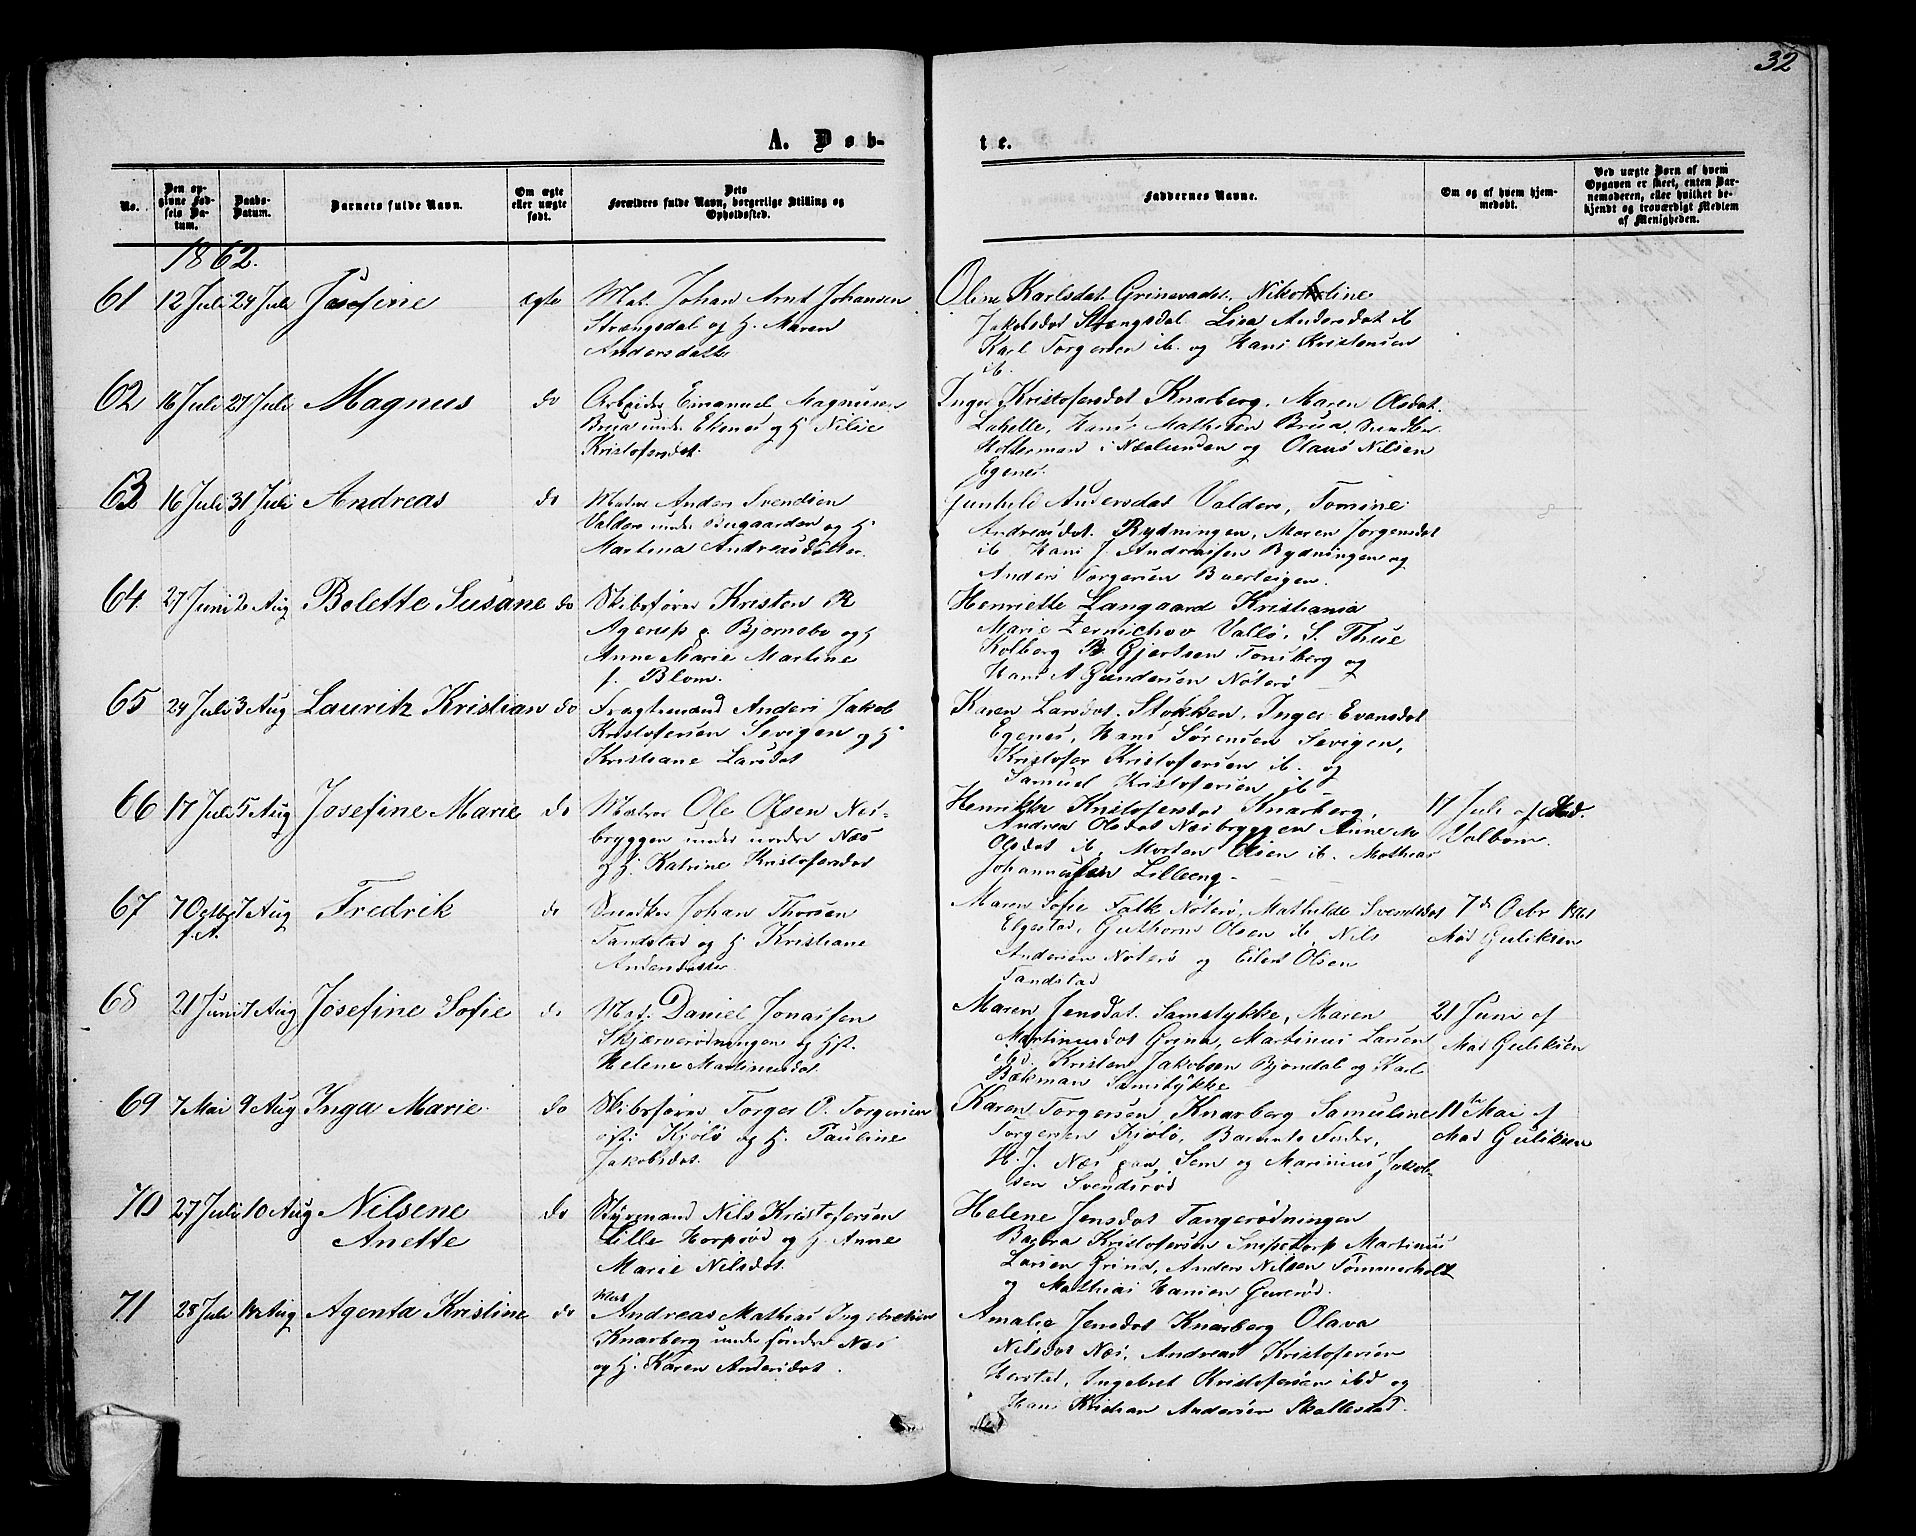 32
A. Døb-
te.
No.
Den op-
givne Fød-
sels Da-
tum.
Daabs-
Datum.
Barnets fulde Navn.
Om ægte
eller uægte
født.
Dets
Forældres fulde Navn, borgerlige Stilling og
Opholdssted.
Faddernes Navne.
Om og af hvem hjem-
medøbt.
Ved uægte Børn af hvem
Opgaven er skeet, enten Bar-
nemoderen, eller hvilket be-
kjendt og troværdigt Medlem
af Menigheden.
1862.
61 12 Juli 24 Juli Josefine ægte
Mat. Johan Arnt Johansen
Strængsdal og H. Maren
Andersdatter
Oline Karlsdat. Nikoline
Jakobsdat Strengsdal Lisa Andersdat ib
Karl Torgersen ib. og Hans Kristensen
ib.
62 16 Juli 27 Juli Magnus do
Arbeider Emanuel Magnusen
Brua under Ekenes og H Nilsie
Kristofersdat.
Inger Kristofersdat Knarberg, Maren Olsdat.
Labelle, Hans Mathisen Brua,
Holterman i Næslunden og Olaus Nilsen
Egenes.
63 16 Juli 31 Juli Andreas do
Matros Anders Svendsen
Valders under og H
Martina Andreasdatter.
Gunhild Andersdat Valders, Tomine
Andreasdat. Rydningen, Maren Jørgensdat
ib. Hans J. Andreassen Rydningen og
Anders Torgersen
64 27 Juni 2 Aug Bolette Susane do
Skibsfører Kristen R
Agerup p. Bjørnebo og H
Anne Marie Martine
f. Blom.
Henriette Langaard Kristiania
Marie Zernichov Vallø, S. Thue
Kolberg B. Gjertsen Tønsberg og
Hans A Gundersen Nøterø
65 24 Juli 3 Aug Lauritz Kristian do
Fragtemand Anders Jakob
Kristofersen Sevigen og H
Kristiane Larsdat
Karen Larsdat. Stokken, Inger Evensdat
Egenes, Hans Sørensen Sevigen,
Kristofer Kristofersen ib. og
Samuel Kristofersen ib
66 17 Juli 5 Aug Josefine Marie do
Matros Ole Olsen Nes-
bryggen under nordre Næs
og H. Katrine Kristofersdat
Henrikke Kristofersdat Knarberg,
Andrea Olsdat Nesbryggen Anne M
Olsdat ib. Morten Olsen ib. Mathias
Johannessen Lilleeng
17 Juli af
Valbom.
67 7 Octbr f.A. 7 Aug Fredrik do
Snedker Johan Thorsen
Tandstad og H. Kristiane
Andersdatter.
Maren Sofie Falk Nøterø, Mathilde Svendsdat
Elgestad, Guthorm Olsen ib, Nils
Andersen Nøterø og Eilert Olsen
Tandstad
7de Octbr 1861
Mad Guliksen
68 21 Juni 7 Aug Josefine Sofie do
Mat. Daniel Jonassen
Skjærverødningen og Hst.
Helene Martinusdat.
Maren Jensdat. Samstykke, Maren
Martinusdat Grina, Martinus Larsen
ibd. Kristen Jakobsen Bjøndal og Karl
Bækman Samstykke
21 Juni af
Mad Guliksen
69 7 Mai 9 Aug Inga Marie do
Skibsfører Torger O. Torgersen
østr. Kjøle og H. Pauline
Jakobsdat.
Karen Torgersen, Knarberg Samuline
Torgersen Kjøle, Barnets Fader,
H. J. Næs paa Sem og Marinius Jakob-
sen Svendsrød
11te Mai af
Mad Guliksen
70 27 Juli 10 Aug Nilsene
Anette do
Styrmand Nils Kristofersen
Lille Horperød og H. Anne
Marie Nilsdat.
Helene Jensdat Tangerødningen
Kristofersen Snipetorp Martinus
Larsen Grina, Anders Nilsen Tømmerholt
og Mathias Hansen
71 28 Juli Aug Agenta Kristine do
Mat.
Andreas Mathias Ingebretsen
Knarberg under søndre Næs
og H. Karen Andersdat.
Amalie Jensdat Knarberg Olava
Nilsdat Næs, Andreas Kristofersen
Herstad, Ingebret Kristofersen ibd og
Hans Kristian Andersen Skallestad.